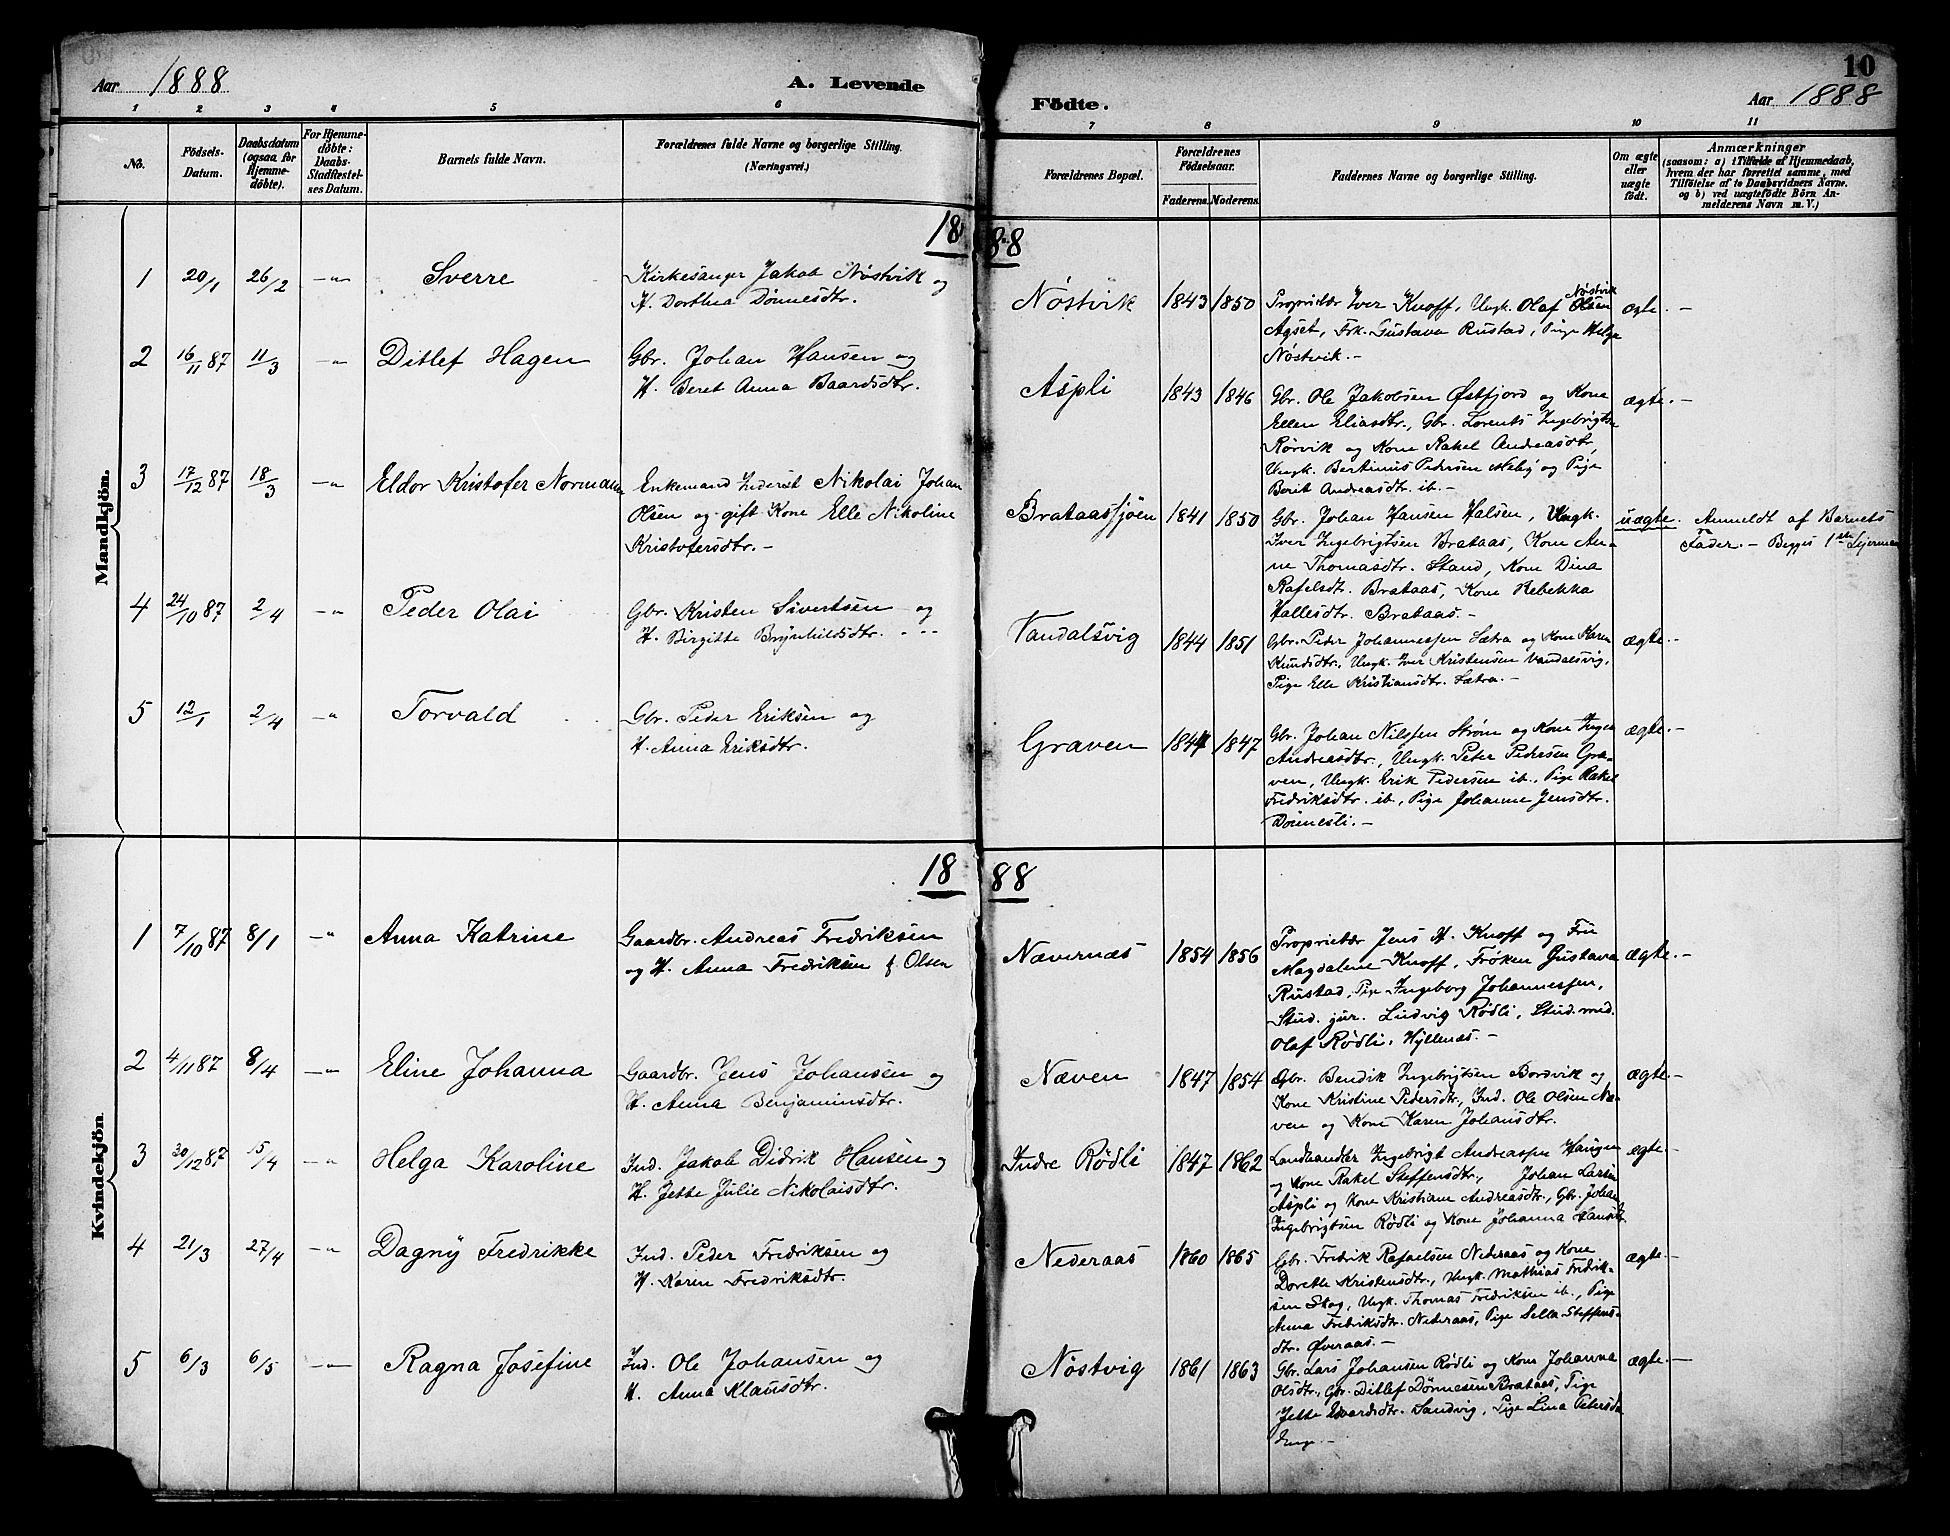 Aar 1888
A. Levende
1 2 3 4 5 6
No.
Födsels-
Datum.
Daabsdatum
(ogsaa for
Hjemme-
döbte).
For Hjemme-
döbte:
Daabs-
Stadfæstel-
ses Datum.
Barnets fulde Navn.
Forældrenes fulde Navne og borgerlige Stilling.
(Næringsvei.)
Mandkjön.
18
1 20/1 26/2 -"- Sverre
Kirkesanger Jakob Nöstvik og
H. Dorthea Dönnesdtr.
2 16/11 87 11/3 -"- Ditlef Hagen
Gbr. Johan Hansen og
H. Beret Anna Baardsdtr.
3 17/12 87 18/3 -"- Eldor Kristofer Normann
Enkemand Inderst Nikolai Johan
Olsen og gift Kone Elle Nikoline
Kristofersdtr. -
4 24/10 87 2/4 -"- Peder Olai
Gbr. Kristen Sivertsen og
H. Birgitte Brynhildsdtr.
5 12/1 2/4 -"- Torvald
Gbr. Peder Eriksen og
H. Anna Eriksdtr.
Kvindekjön
18
1 7/10 87 8/1 -"- Anna Katrine
Gaardbr. Andreas Fredriksen
og H. Anna Fredriksen f. Olsen
2 4/11 87 8/4 -"- Eline Johanna
Gaardbr. Jens Johansen og
H. Anna Benjaminsdtr.
3 30/12 87 15/4 -"- Helga Karoline
Ind. Jakob Didrik Hansen og
H. Jette Julie Nikolaisdtr.
4 21/3 27/4 -"- Dagny Fredrikke
Ind. Peder Fredriksen og
H. Karen Fredriksdtr.
5 6/3 6/5 -"- Ragna Josefine
Ind. Ole Johansen og
H. Anna Klausdtr.
10
Födte.
Aar 1888
7 8 9 10 11
Forældrenes Bopæl.
Forældrenes
Födselsaar.
Faderens. Moderens.
Faddernes Navne og borgerlige Stilling.
Om ægte
eller
uægte
födt.
Anmærkninger
(saasom: a) i Tilfælde af Hjemmedaab,
hvem der har forrettet samme, med
Tilföielse af to Daabsvidners Navne.
og b) ved uægtefödte Börn An-
melderens Navn m. V.)
88
Nöstvik 1843 1850
Proprietær Iver Knoff, Ungk. Olaf Olsen Nöstvik
Agset, Frk. Gustava Rustad, Pige Helga
Nöstvik. -
ægte. -
Aspli 1843 1846
Gbr. Ole Jakobsen Östfjord og Kone
Ellen Eliasdtr., Gbr. Lorents Ingebrigtsn
Rörvik og Kone Rakel Andreasdtr,
Ungk. Bertinus Pedersen Heby og Pige
Berit Andreasdtr. ib. -
ægte. -
Brataassjöen 1841 1850
Gbr. Johan Hansen Halsen, Ungk.
Iver Ingebrigtsen Brataas, Kone An-
ne Thomasdtr. Stand, Kone Dina
Rafelsdt. Brataas, Kone Rebekka
Hallesdtr. Brataas. -
uægte. Anmeldt af Barnets
Fader. - Begges 1ste Lejerm
Vandalsvig 1844 1851
Gbr. Peter Johannessen Sætra og Kone Karen
Knudsdtr., Ungk. Iver Kristensen Vandalsvig,
Pige Elle Kristiansdtr. Sætra. -
ægte. -
Graven 1844 1847
Gbr. Johan Nilssen Ström og Kone Inger
Andreasdtr., Ungk. Peter Pedersen Gra-
ven, Ungk. Erik Pedersen ib., Pige Rakel
Fredriksdtr. ib., Pige Johanne Jensdtr.
Dönnesli. -
ægte. -
88
Nævernæs 1854 1856
Proprietær Jens H. Knoff og Fru
Magdalene Knoff, Fröken Gustava
Rustad, Pige Ingeborg Johannessen,
Stud. jur. Ludvig Rödli, Stud. med.
Olaf Rödli, Hyllenæs. -
ægte. -
Næven 1847 1854
Gbr. Bendik Ingebrigtsen Bordvik og
Kone Kristine Pedersdtr., Ind. Ole Olsen Næ-
ven og Kone Karen Johansdtr.
ægte. -
Indre Rödli 1847 1862
Landhandler Ingebrigt Andreassen Haugen
og Kone Rakel Steffensdtr., Johan Larsen
Aspli og Kone Kristiane Andreasdtr., Gbr. Johan
Ingebrigtsen Rödli og Kone Johanna Hansdtr
ægte. -
Nederaas 1860 1865
Gbr. Fredrik Rafaelsen Nederaas og Kone
Dorethe Kristensdtr., Ungk. Mathias Fredrik-
sen Skog, Ungk. Thomas Fredriksen ib., Pige
Anna Fredriksdtr. Nederaas, Pige Sella Steffens-
dtr. Överaas. -
ægte. -
Nöstvig 1861 1863
Gbr. Lars Johansen Rödli og Kone Johanna
Olsdtr., Gbr. Ditlef Dönnesen Brataas, Pige
Jette Edvardsdtr. Sandvig, Pige Lina Petersdtr
Enge. -
ægte. -